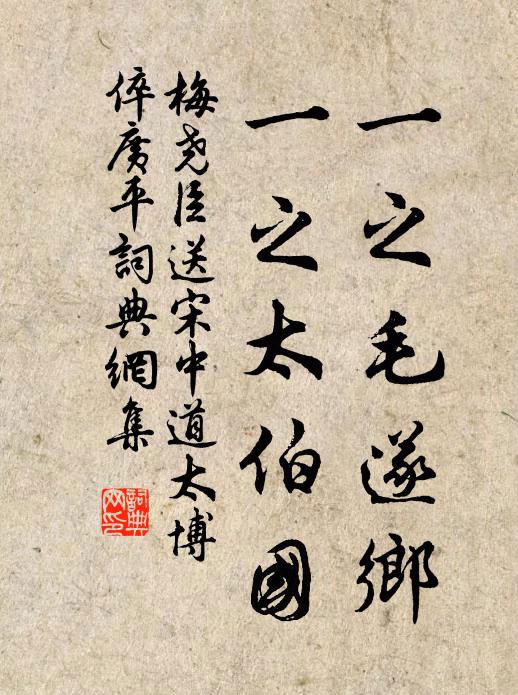 一之毛遂鄉
一之太伯國
梅堯臣送宋中道太博
倅廣平詞典網集
詞典
网印